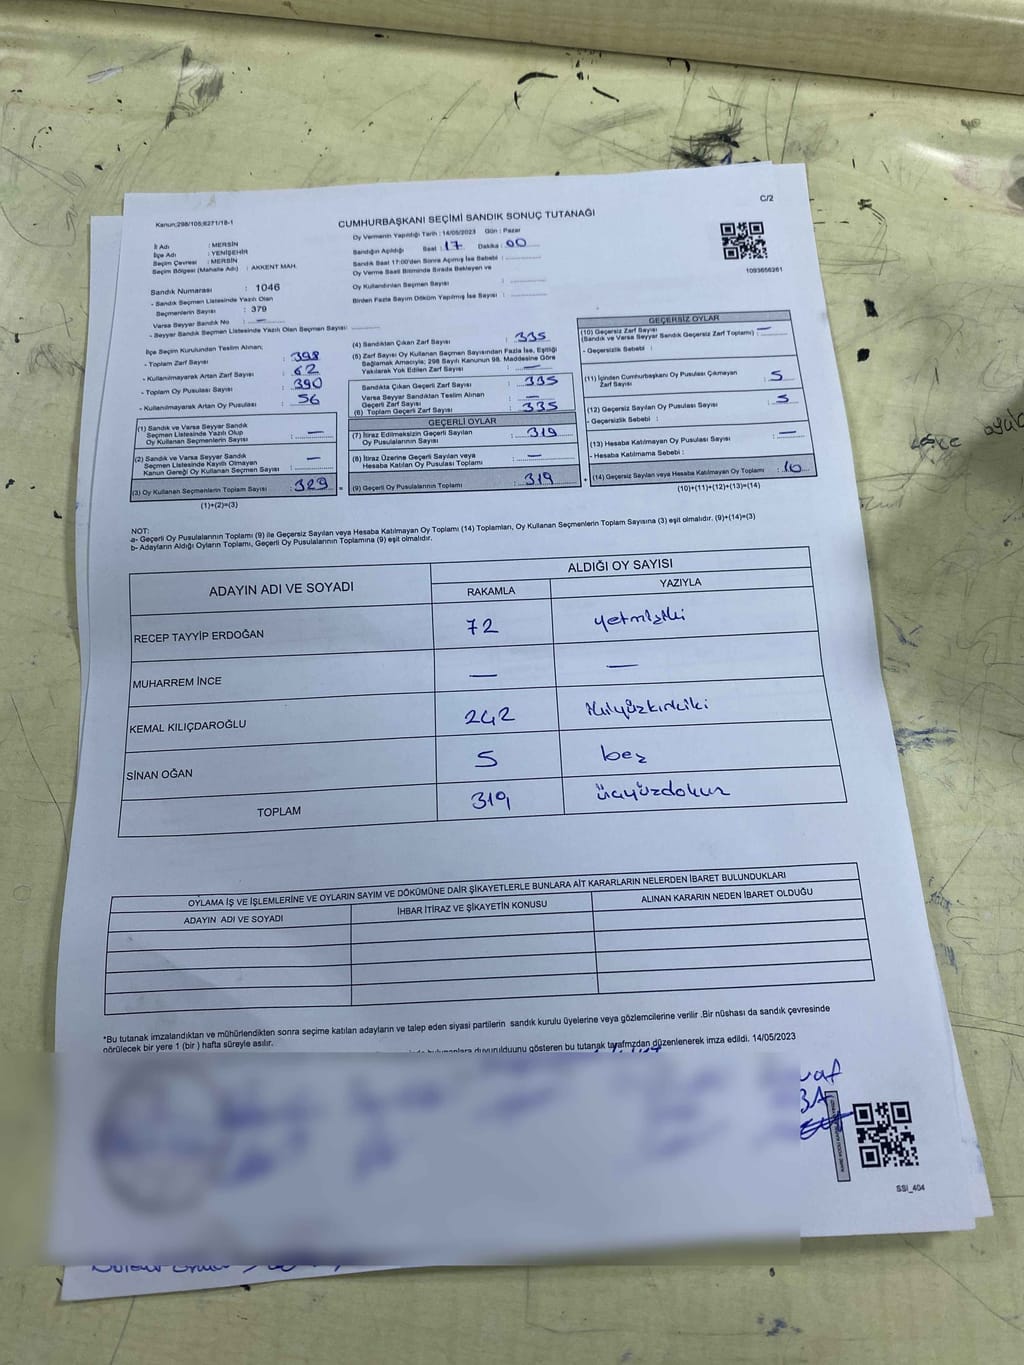 C/2
Kanun:298/105;6271/18-1
CUMHURBAŞKANI SEÇİMİ SANDIK SONUÇ TUTANAĞI
Oy Vermenin Yapıldığı Tarih : 14/05/2023 Gün : Pazar
İl Adı : MERSİN
İlçe Adı : YENİŞEHİR
Seçim Çevresi : MERSİN
Seçim Bölgesi (Mahalle Adı) : AKKENT MAH.
Sandığın Açıldığı Saat : 17 Dakika : 00
Sandık Saat 17:00'den Sonra Açılmış İse Sebebi :
Oy Verme Saati Bitiminde Sırada Bekleyen ve
Oy Kullandırılan Seçmen Sayısı :
Birden Fazla Sayım Döküm Yapılmış İse Sayısı :
1093656261
Sandık Numarası : 1046
- Sandık Seçmen Listesinde Yazılı Olan
Seçmenlerin Sayısı : 379
Varsa Seyyar Sandık No : —
- Seyyar Sandık Seçmen Listesinde Yazılı Olan Seçmen Sayısı:
İlçe Seçim Kurulundan Teslim Alınan;
- Toplam Zarf Sayısı : 398
- Kullanılmayarak Artan Zarf Sayısı : 62
- Toplam Oy Pusulası Sayısı : 390
- Kullanılmayarak Artan Oy Pusulası : 56
(1) Sandık ve Varsa Seyyar Sandık
Seçmen Listesinde Yazılı Olup
Oy Kullanan Seçmenlerin Sayısı : —
(2) Sandık ve Varsa Seyyar Sandık
Seçmen Listesinde Kayıtlı Olmayan
Kanun Gereği Oy Kullanan Seçmen Sayısı : —
(3) Oy Kullanan Seçmenlerin Toplam Sayısı : 329
(1)+(2)=(3)
(4) Sandıktan Çıkan Zarf Sayısı : 335
(5) Zarf Sayısı Oy Kullanan Seçmen Sayısından Fazla İse, Eşitliği
Sağlamak Amacıyla; 298 Sayılı Kanunun 98. Maddesine Göre
Yakılarak Yok Edilen Zarf Sayısı : —
Sandıkta Çıkan Geçerli Zarf Sayısı : 335
Varsa Seyyar Sandıktan Teslim Alınan
Geçerli Zarf Sayısı : —
(6) Toplam Geçerli Zarf Sayısı : 335
GEÇERLİ OYLAR
(7) İtiraz Edilmeksizin Geçerli Sayılan
Oy Pusulalarının Sayısı : 319
(8) İtiraz Üzerine Geçerli Sayılan veya
Hesaba Katılan Oy Pusulası Toplamı : —
(9) Geçerli Oy Pusulalarının Toplamı : 319
GEÇERSİZ OYLAR
(10) Geçersiz Zarf Sayısı
(Sandık ve Varsa Seyyar Sandık Geçersiz Zarf Toplamı) : —
- Geçersizlik Sebebi :
(11) İçinden Cumhurbaşkanı Oy Pusulası Çıkmayan
Zarf Sayısı : 5
(12) Geçersiz Sayılan Oy Pusulası Sayısı : 5
- Geçersizlik Sebebi :
(13) Hesaba Katılmayan Oy Pusulası Sayısı : —
- Hesaba Katılmama Sebebi :
(14) Geçersiz Sayılan veya Hesaba Katılmayan Oy Toplamı : 10
(10)+(11)+(12)+(13)=(14)
NOT:
a- Geçerli Oy Pusulalarının Toplamı (9) ile Geçersiz Sayılan veya Hesaba Katılmayan Oy Toplamı (14) Toplamları, Oy Kullanan Seçmenlerin Toplam Sayısına (3) eşit olmalıdır. (9)+(14)=(3)
b- Adayların Aldığı Oyların Toplamı, Geçerli Oy Pusulalarının Toplamına (9) eşit olmalıdır.
ADAYIN ADI VE SOYADI ALDIĞI OY SAYISI
RAKAMLA YAZIYLA
RECEP TAYYİP ERDOĞAN 72 yetmişiki
MUHARREM İNCE — —
KEMAL KILIÇDAROĞLU 242 ikiyüzkırkiki
SİNAN OĞAN 5 beş
TOPLAM 319 üçyüzdokuz
OYLAMA İŞ VE İŞLEMLERİNE VE OYLARIN SAYIM VE DÖKÜMÜNE DAİR ŞİKAYETLERLE BUNLARA AİT KARARLARIN NELERDEN İBARET BULUNDUKLARI
ADAYIN ADI VE SOYADI İHBAR İTİRAZ VE ŞİKAYETİN KONUSU ALINAN KARARIN NEDEN İBARET OLDUĞU
*Bu tutanak imzalandıktan ve mühürlendikten sonra seçime katılan adayların ve talep eden siyasi partilerin sandık kurulu üyelerine veya gözlemcilerine verilir .Bir nüshası da sandık çevresinde
görülecek bir yere 1 (bir ) hafta süreyle asılır.
duyurulduunu gösteren bu tutanak tarafmzdan düzenlenerek imza edildi. 14/05/2023
SSI_404